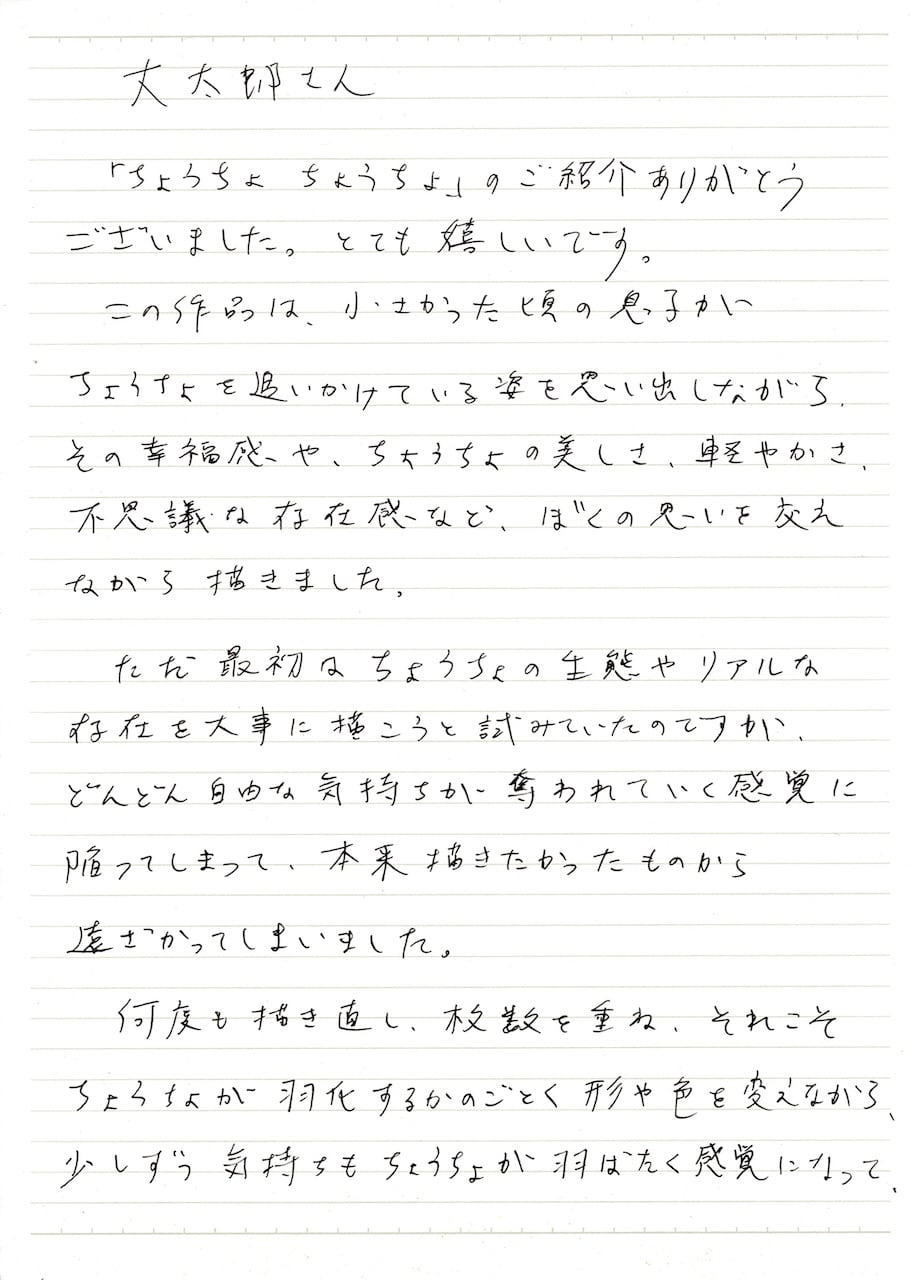 丈太郎さん
「ちょうちょ ちょうちょ」のご紹介ありがとう
ございました。とても嬉しいです。
この作品は、小さかった頃の息子が
ちょうちょを追いかけている姿を思い出しながら、
その幸福感や、ちょうちょの美しさ、軽やかさ、
不思議な存在感など、ぼくの思いを交え
ながら描きました。
ただ最初はちょうちょの生態やリアルな
存在を大事に描こうと試みていたのですが、
どんどん自由な気持ちが奪われていく感覚に
陥ってしまって、本来描きたかったものから
遠ざかってしまいました。
何度も描き直し、枚数を重ね、それこそ
ちょうちょが羽化するかのごとく形や色を変えながら、
少しずつ気持ちもちょうちょが羽ばたく感覚になって、